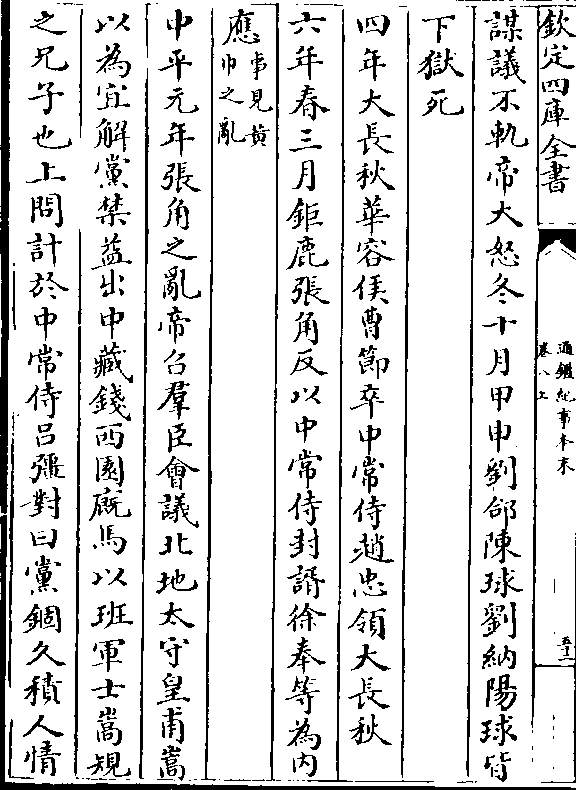 欽定四庫全書
通鑑紀事本末
卷八上
五十二
謀議不軌帝大怒冬十月甲申劉郃陳球劉納陽球皆
下獄死
四年大長秋華容侯曹節卒中常侍趙忠領大長秋
六年春三月鉅鹿張角反以中常侍封諝徐奉等為内
應事見黄
巾之亂
中平元年張角之亂帝召羣臣會議北地太守皇甫嵩
以為宜解黨禁益出中藏錢西園廐馬以班軍士嵩規
之兄子也上問計於中常侍吕彊對曰黨錮久積人情